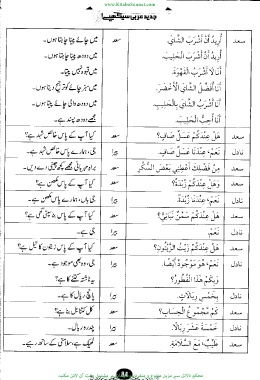 www.KitaboSunnat.com
جدید عربی سیکھیے!
سعد أُرِيدُ أَنْ أَشْرَبَ الشَّايَ. سعد میں چائے پینا چاہتا ہوں۔
أُرِيدُ أَنْ أَشْرَبَ الْحَلِيبَ. میں دودھ پینا چاہتا ہوں۔
أَنَا لَا أَشْرَبُ الْقَهْوَةَ. میں قہوہ نہیں پیتا۔
أَنَا أُفَضِّلُ الشَّايَ الْأَخْضَرَ. میں سبز چائے کو ترجیح دیتا ہوں۔
أَنَا أَشْرَبُ الشَّايَ بِالْحَلِيبِ. میں دودھ والی چائے پیتا ہوں۔
أَنَا أُحِبُّ الْحَلِيبَ. مجھے دودھ پسند ہے۔
سعد هَلْ عِنْدَكُمْ عَسَلٌ صَافٍ؟ سعد کیا آپ کے پاس خالص شہد ہے؟
نادل نَعَمْ، عِنْدَنَا عَسَلٌ صَافٍ. بیرا جی، ہمارے پاس خالص شہد ہے۔
سعد مِنْ فَضْلِكَ أَعْطِنِي بَعْضَ السُّكَّرِ سعد براہ مہربانی مجھے کچھ چینی دے دیں۔
سعد وَهَلْ عِنْدَكُمْ زُبْدَةٌ؟ سعد کیا آپ کے پاس مکھن ہے؟
نادل نَعَمْ، عِنْدَنَا زُبْدَةٌ. بیرا جی ہاں، ہمارے پاس مکھن ہے۔
سعد هَلْ عِنْدَكُمْ سَمْنٌ نَبَاتِيٌّ؟ سعد کیا آپ کے پاس بناسپتی گھی ہے؟
نادل نَعَمْ. بیرا جی ہے۔
سعد هَلْ عِنْدَكُمْ زَيْتُ الزَّيْتُونِ؟ سعد کیا آپ کے پاس زیتون کا تیل ہے؟
نادل نَعَمْ، هُوَ مَوْجُودٌ أَيْضًا. بیرا جی، وہ بھی موجود ہے۔
سعد وَبِكَمْ هٰذَا الْفَطُورُ؟ سعد یہ ناشتہ کتنے کا ہے؟
نادل بِخَمْسِ رِيَالَاتٍ. بیرا پانچ ریال کا ہے۔
سعد كَمْ مَجْمُوعُ الْحِسَابِ؟ سعد کل کتنا بل بنا ہے؟
نادل خَمْسَةَ عَشَرَ رِيَالًا. بیرا پندرہ ریال۔
سعد طَيِّبٌ، مَعَ السَّلَامَةِ. سعد ٹھیک ہے، سلامتی کے ساتھ رہیے۔
محکم دلائل سے مزین متنوع و منفرد موضوعات پر مشتمل مفت آن لائن مکتبہ